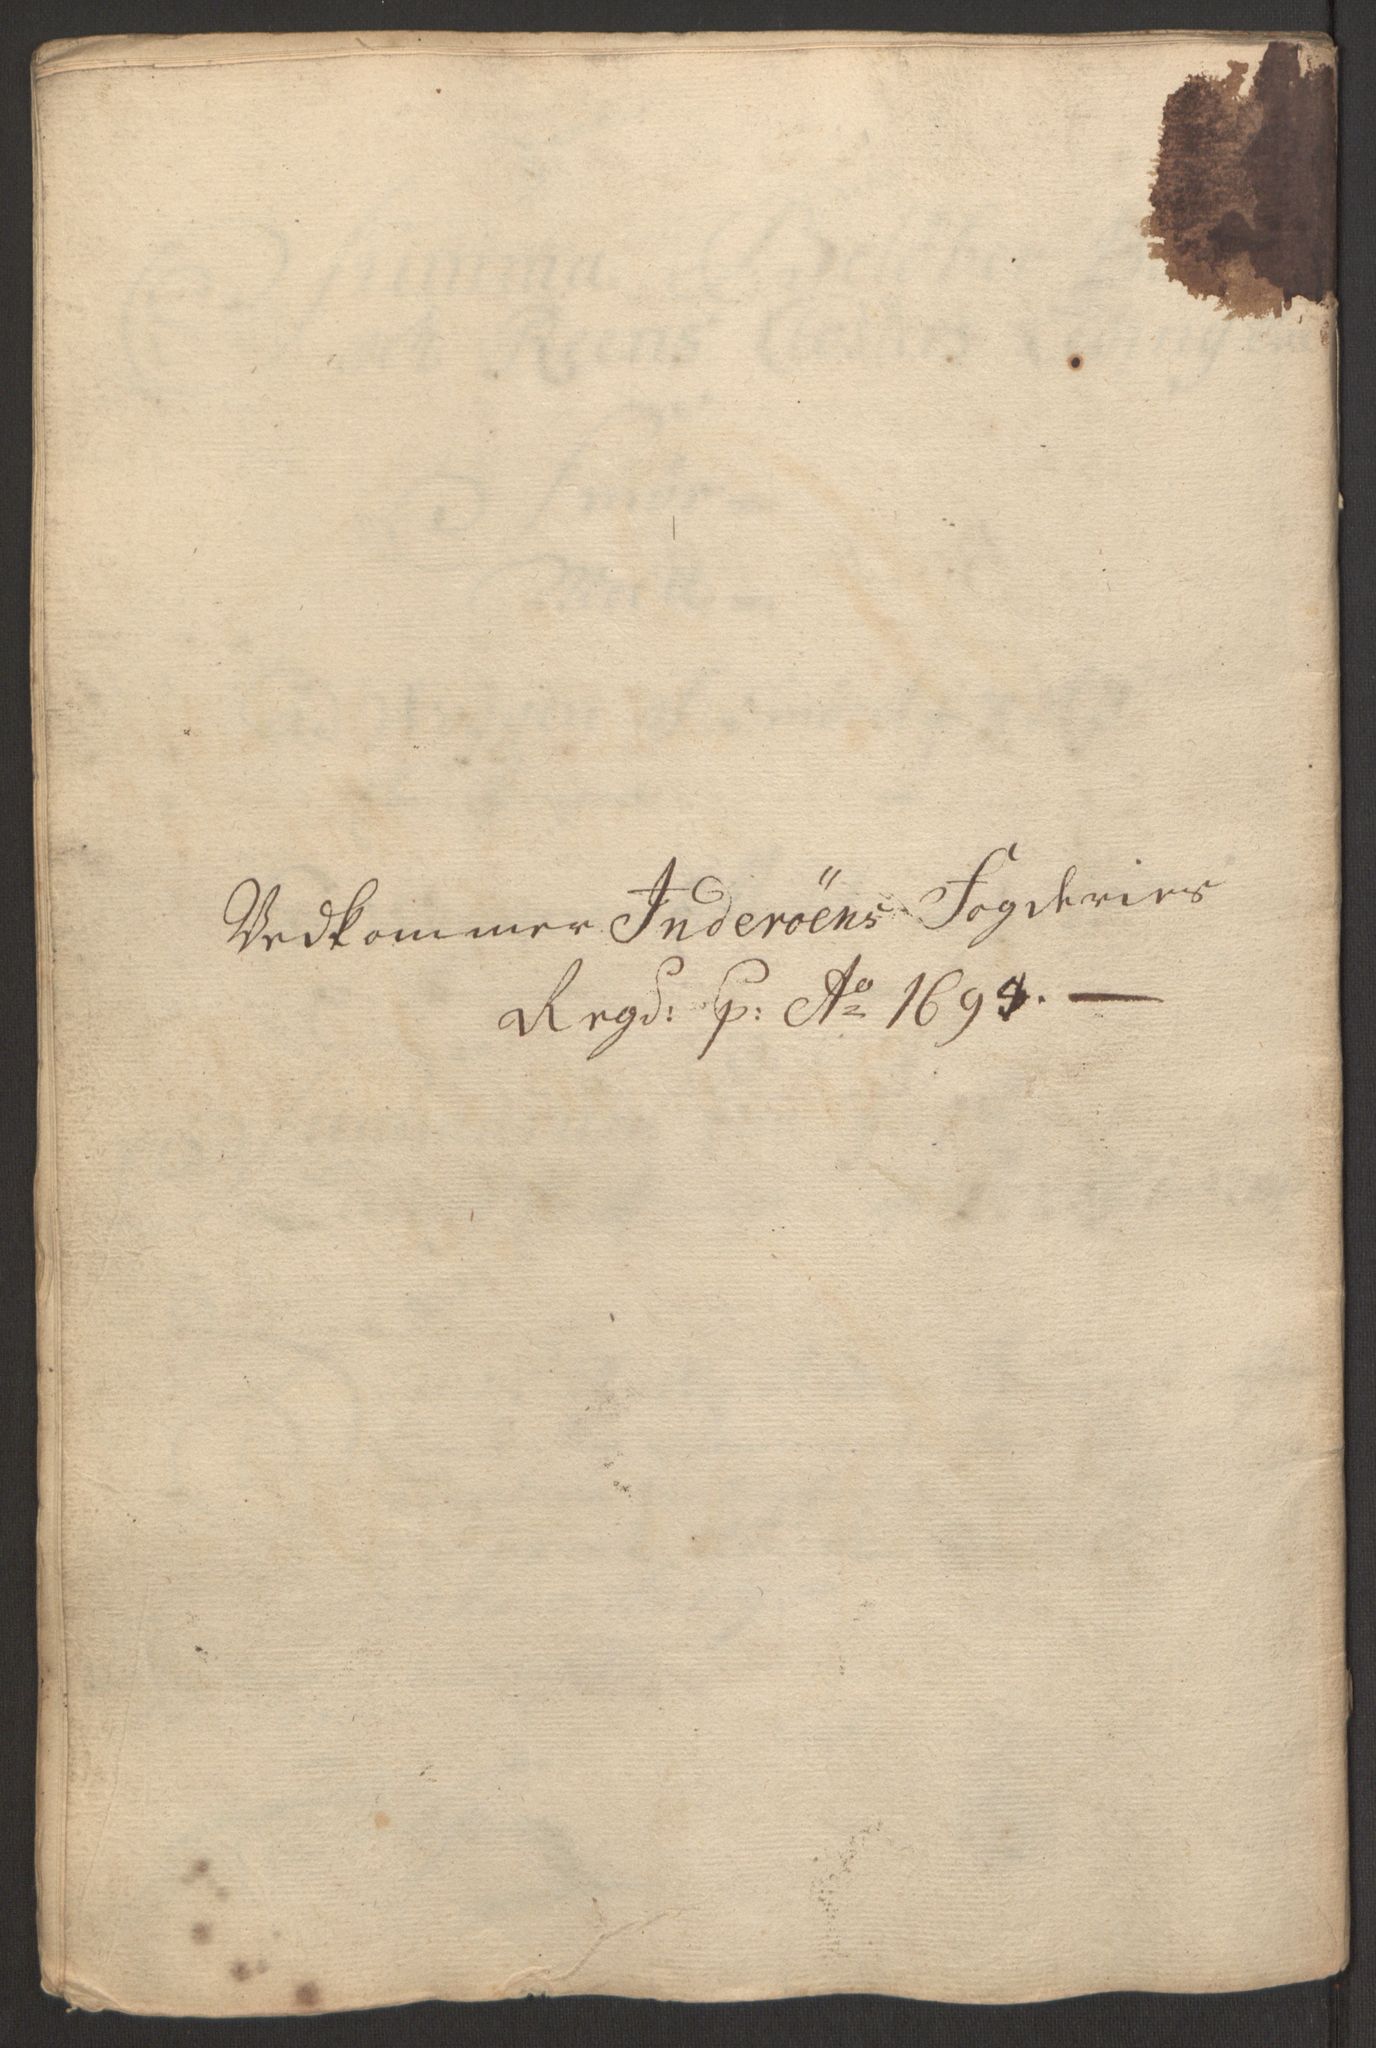 Vedkommer Inderöens Fogderies
Regd: p: Ao 169